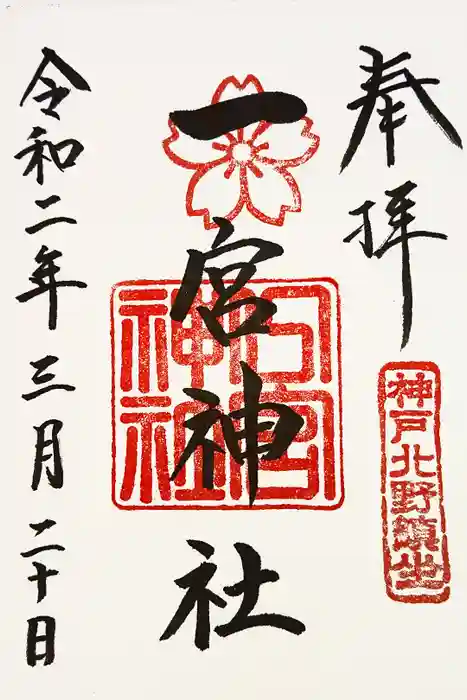 奉拝
神戸北野鎮坐
一宮神社
令和二年三月二十日